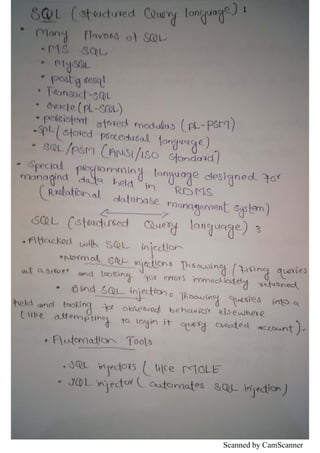 SQL (structured Query language) :
* Many flavors of SQL
• MS SQL
• MySQL
• postgresql
• Transact-SQL
• Oracle (PL-SQL)
• persistent stored modulas (PL-PSM)
• SPL (stored procedural language)
• SQL/PSM (ANSI/ISO standard)
* Special programming language designed for
managind data held in RDMS
(Relational database management system)
SQL (structured Query language) :
• Attacked with SQL injection
• Normal SQL injections Throwing / Firing queries
at a server and looking for errors immediately returned
• Bind SQL injections Throwing queries into a
field and looking for observed behavior elsewhere
(like attempting to login if query created account).
• Automation Tools
• SQL injectors (like MOLE
• SQL injector (automates SQL injection)
Scanned by CamScanner